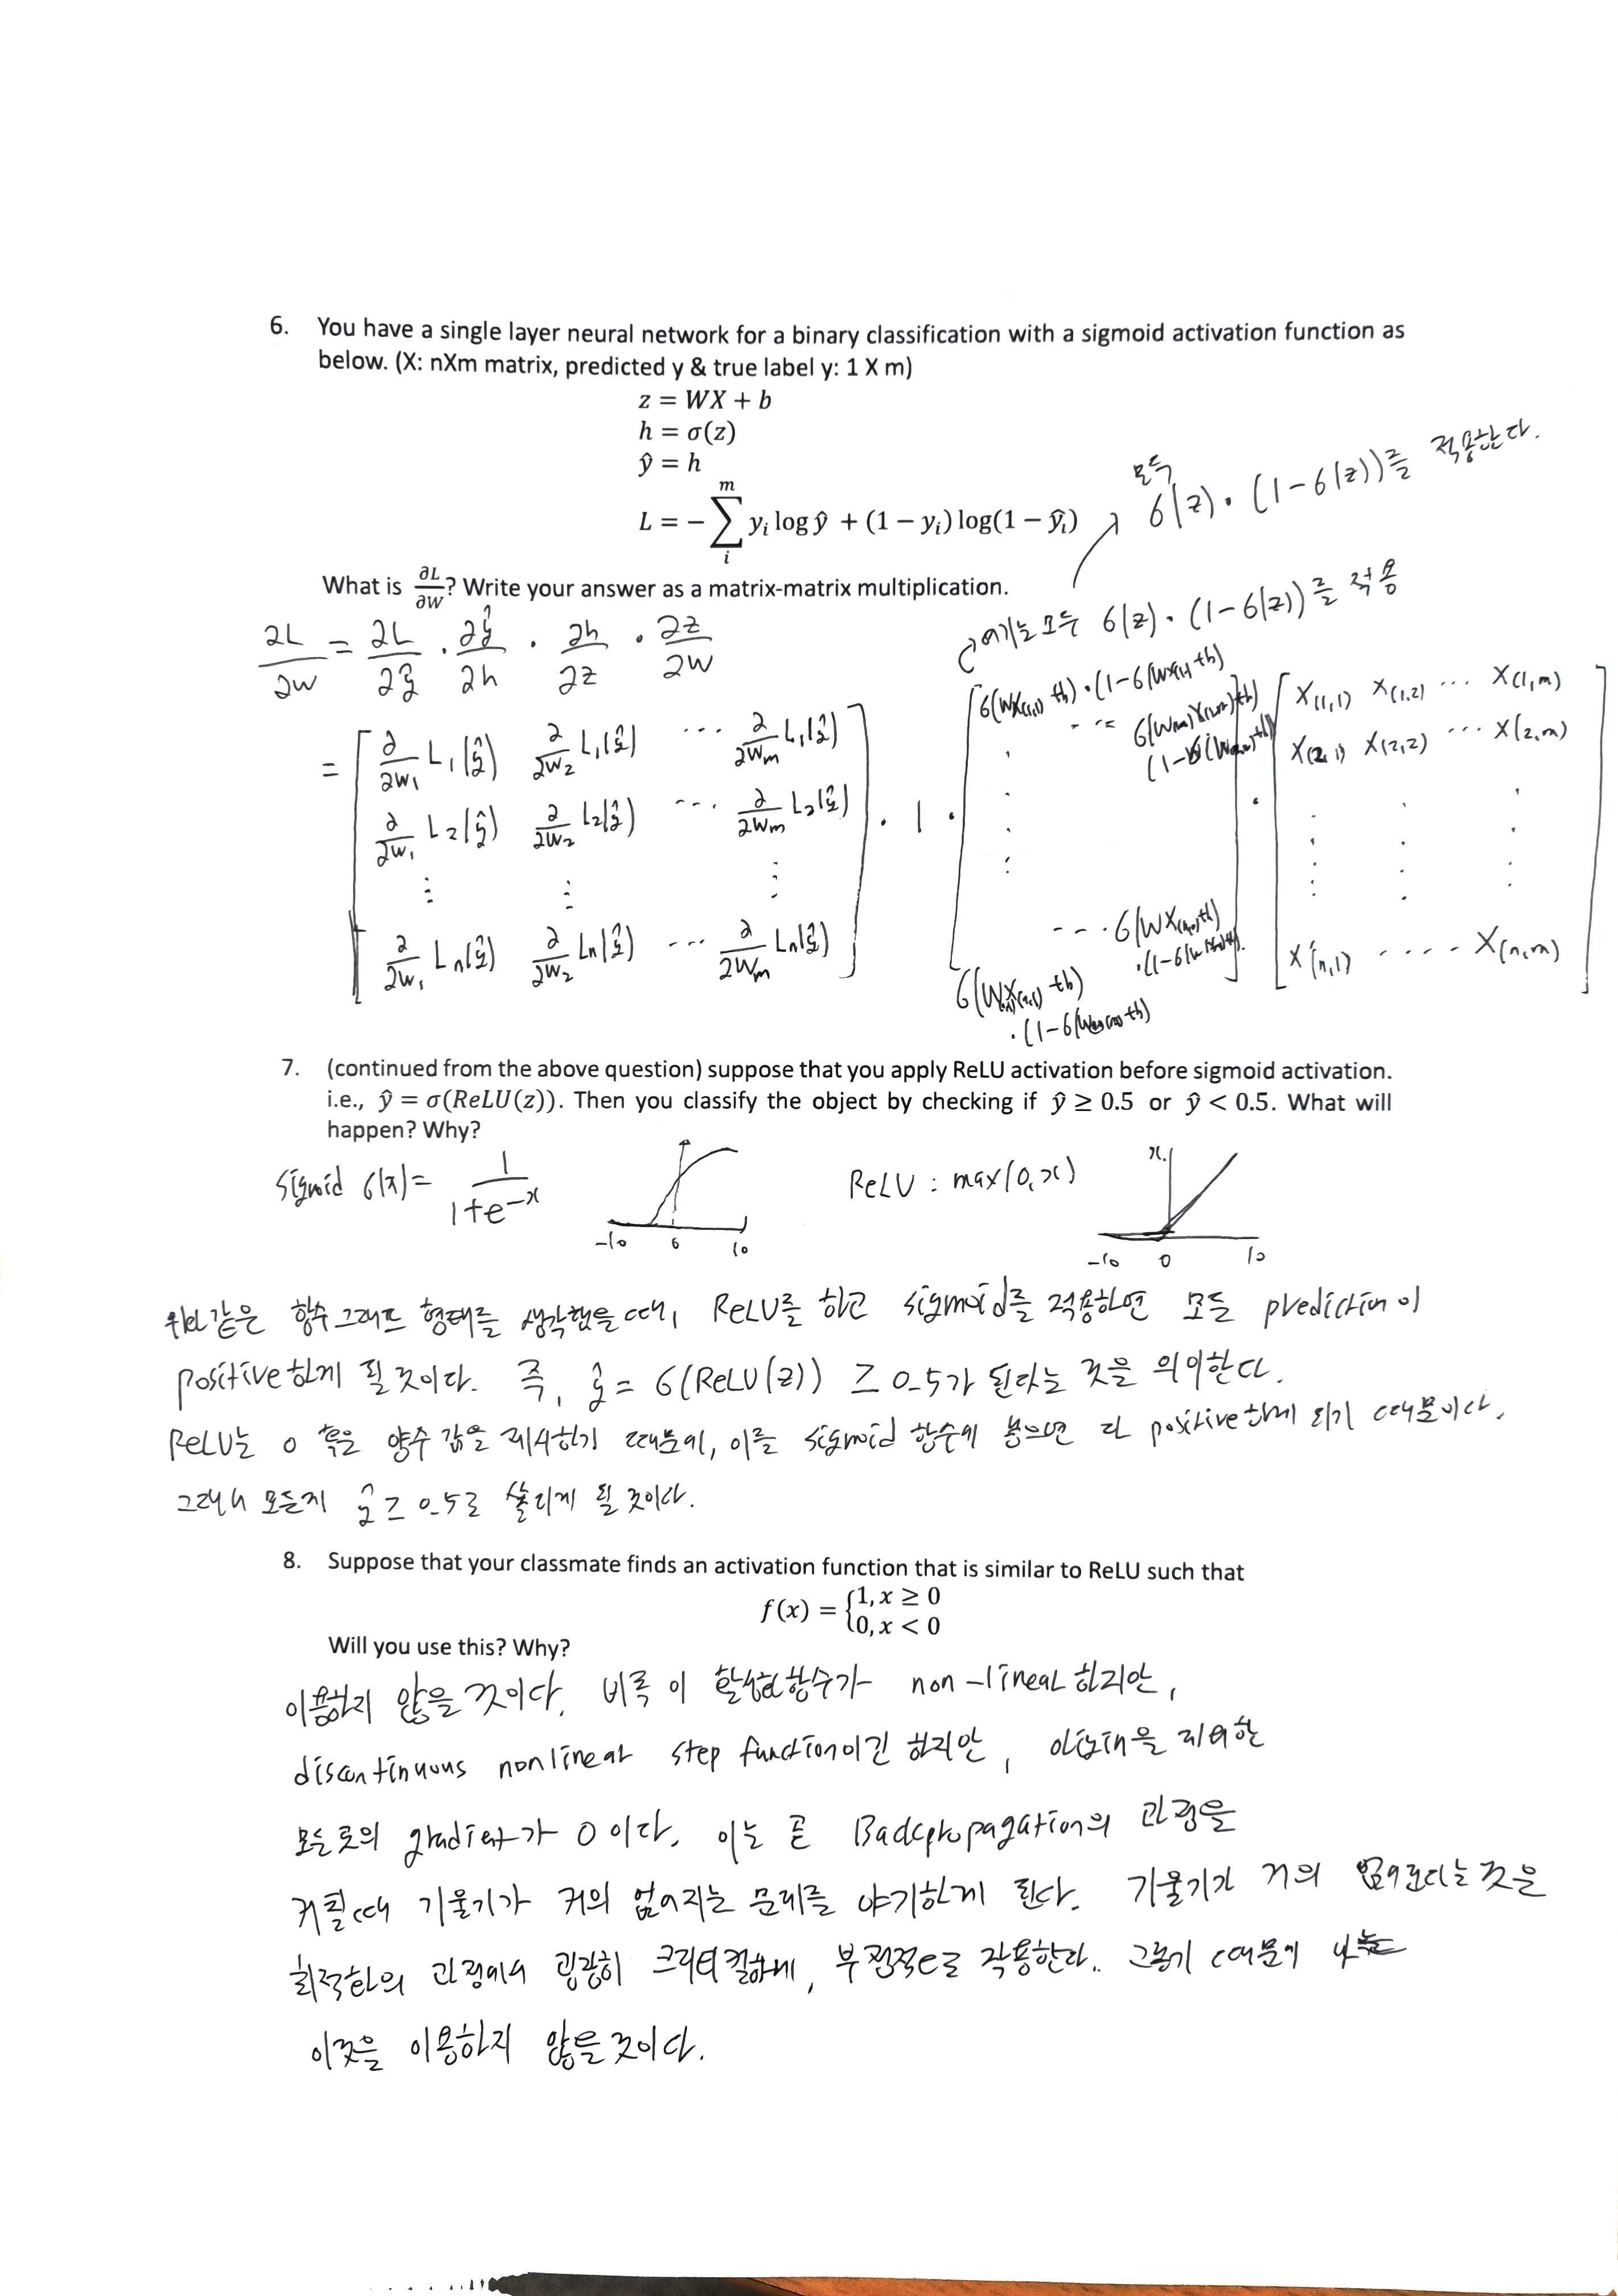 6. You have a single layer neural network for a binary classification with a sigmoid activation function as
below. (X: nXm matrix, predicted y & true label y: 1 X m)
z = WX + b
h = σ(z)
ŷ = h
L = − ∑_i^m y_i log ŷ + (1 − y_i) log(1 − ŷ_i)
모두 σ(z)·(1−σ(z))를 적용한다.
What is ∂L/∂W? Write your answer as a matrix-matrix multiplication.
여기는 모두 σ(z)·(1−σ(z))를 적용
∂L/∂w = ∂L/∂ŷ · ∂ŷ/∂h · ∂h/∂z · ∂z/∂w
= [ ∂/∂w₁ L₁(ŷ) ∂/∂w₂ L₁(ŷ) ... ∂/∂wₘ L₁(ŷ)
∂/∂w₁ L₂(ŷ) ∂/∂w₂ L₂(ŷ) ... ∂/∂wₘ L₂(ŷ)
∂/∂w₁ Lₙ(ŷ) ∂/∂w₂ Lₙ(ŷ) ... ∂/∂wₘ Lₙ(ŷ) ] · 1 ·
[ σ(WX(1,1)+b)·(1−σ(WX(1,1)+b)
[ X(1,1) X(1,2) ... X(1,m)
X(2,1) X(2,2) ... X(2,m)
X(n,1) .... X(n,m) ]
7. (continued from the above question) suppose that you apply ReLU activation before sigmoid activation.
i.e., ŷ = σ(ReLU(z)). Then you classify the object by checking if ŷ ≥ 0.5 or ŷ < 0.5. What will
happen? Why?
Sigmoid σ(x) = 1/(1+e^−x)
-10 0 10
ReLU : max(0,x)
x
-10 0 10
위와 같은 함수 그래프 형태를 생각했을 때, ReLU를 하고 sigmoid를 적용하면 모든 prediction이
positive하게 될 것이다. 즉, ŷ = σ(ReLU(z)) ≥ 0.5가 된다는 것을 의미한다.
ReLU는 0 혹은 양수 값을 제시하기 때문에, 이를 sigmoid 함수에 넣으면 다 positive하게 되기 때문이다.
그래서 모든게 ŷ ≥ 0.5로 쏠리게 될 것이다.
8. Suppose that your classmate finds an activation function that is similar to ReLU such that
f(x) = {1, x ≥ 0
0, x < 0
Will you use this? Why?
이용하지 않을 것이다. 비록 이 활성화 함수가 non-linear 하지만,
discontinuous nonlinear step function이긴 하지만, origin을 제외한
모든 곳의 gradient가 0이다. 이는 곧 Backpropagation의 과정을
거칠때 기울기가 거의 없어지는 문제를 야기하게 된다. 기울기가 거의 없어진다는 것은
최적화의 과정에서 굉장히 크리티컬하게, 부정적으로 작용한다. 그렇기 때문에 나는
이것을 이용하지 않을 것이다.